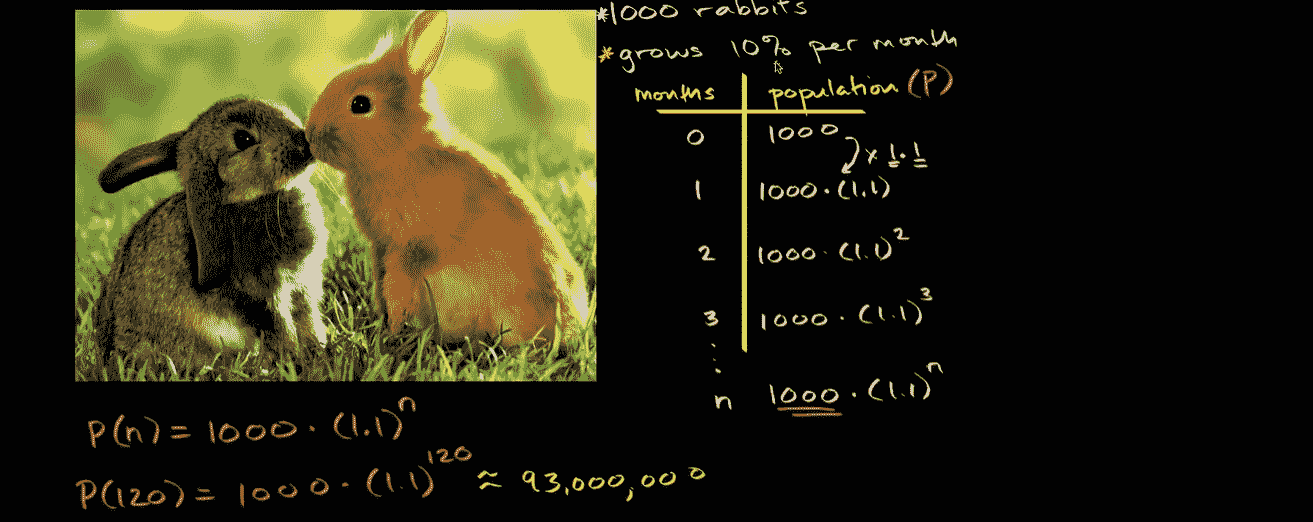 *1000 rabbits
*grows 10% per month
months population (P)
0 1000
× 1.1
1 1000 · (1.1)
2 1000 · (1.1)²
3 1000 · (1.1)³
⋮
n 1000 · (1.1)ⁿ
P(n) = 1000 · (1.1)ⁿ
P(120) = 1000 · (1.1)¹²⁰ ≈ 93,000,000